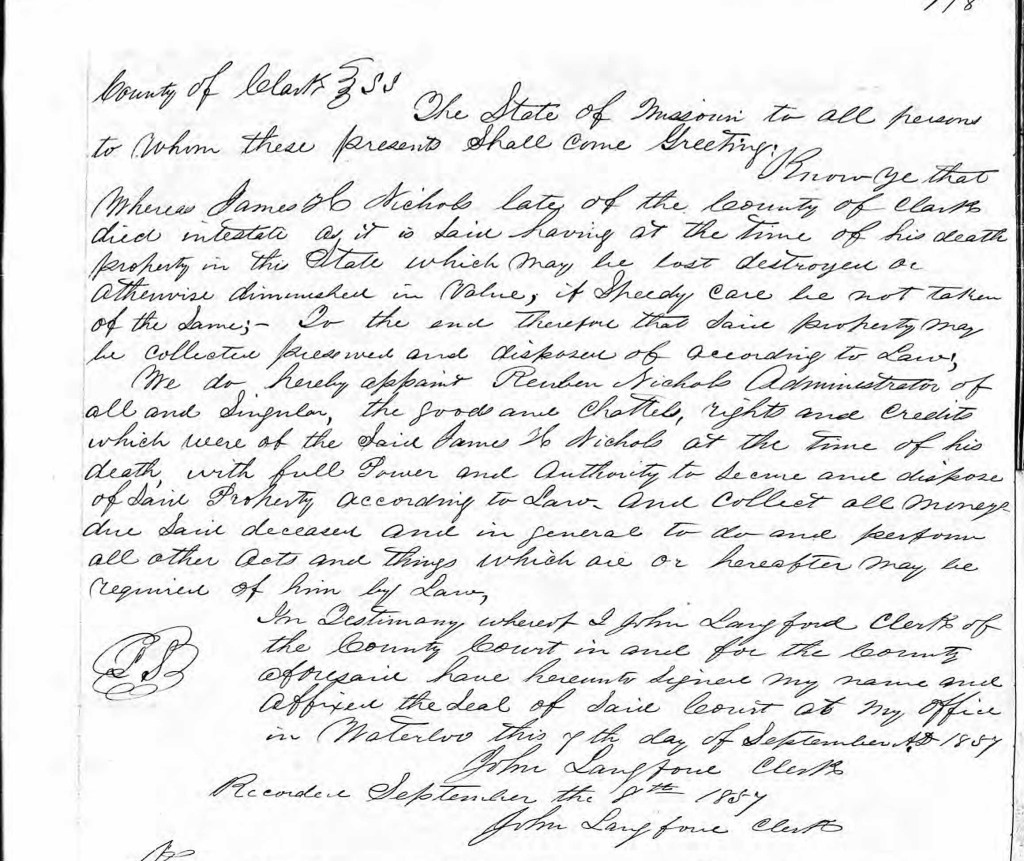 118
County of Clark } SS
The State of Missouri to all persons
to Whom these presents Shall Come Greeting;
Know ye that
Whereas James H Nichols late of the County of Clark
died intestate as it is Said having at the time of his death
property in this State which may be lost destroyed or
otherwise diminished in Value, if Speedy care be not taken
of the Same;- To the end therefore that Said property may
be collected preserved and disposed of according to Law;
We do, hereby appoint Reuben Nichols Administrator of
all and Singular, the goods and chattels, rights and credits
which were of the Said James H Nichols at the time of his
death, with full Power and Authority to secure and dispose
of Said Property according to Law- And Collect all moneys
due Said deceased and in general to do and perform
all other Acts and things which are or hereafter may be
required of him by Law,
In Testimony whereof I John Langford Clerk of
the County Court in and for the County
aforesaid have hereunto Signed my name and
Affixed the Seal of Said Court at my Office
in Waterloo this 7th day of September AD 1857
John Langford Clerk
LS
Recorded September the 8th 1857
John Langford Clerk